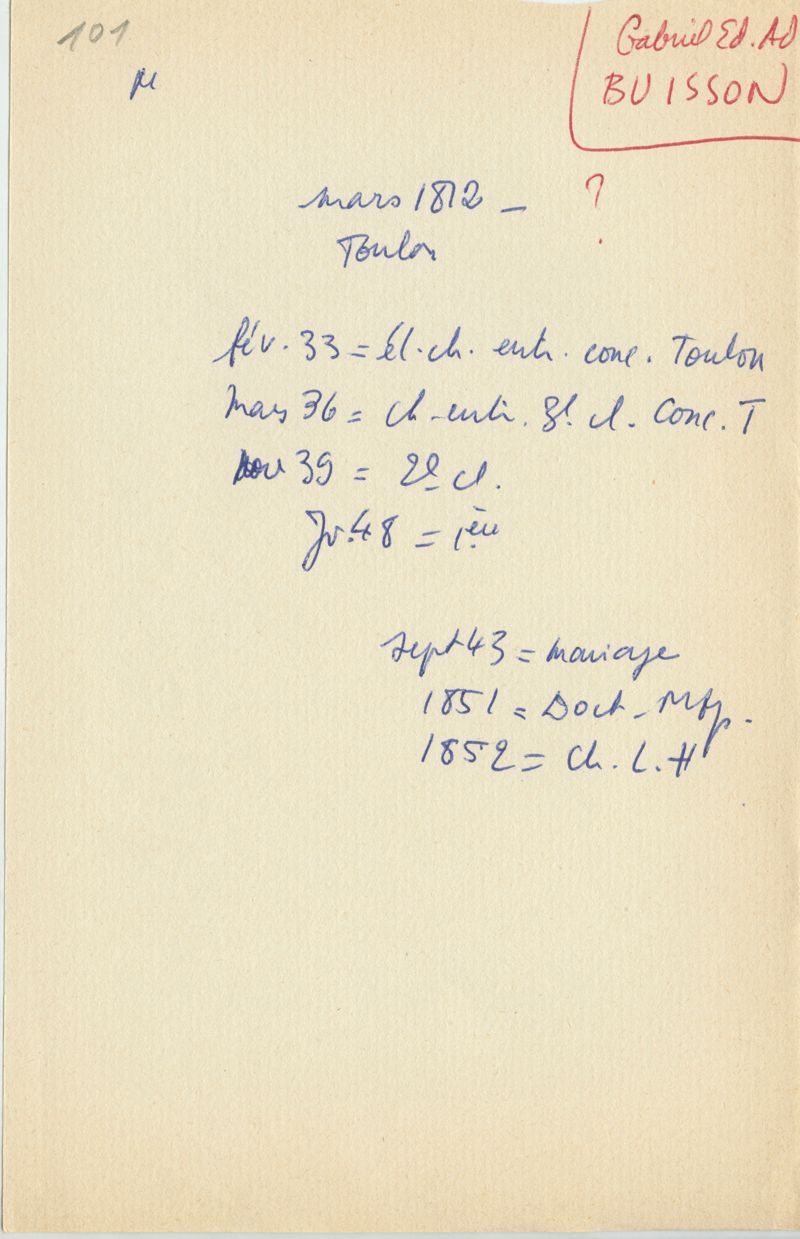 101
Gabriel Ed. Ad
BUISSON
M
mars 1812 - ?
Toulon
fév. 33 = él. ch. entr. conc. Toulon
Mars 36 = ch. entr. 3e cl. Conc. T
Nov 39 = 2e cl.
Jv. 48 = 1ère
sept 43 = mariage
1851 = Doct. - Mtp.
1852 = Ch. L. H